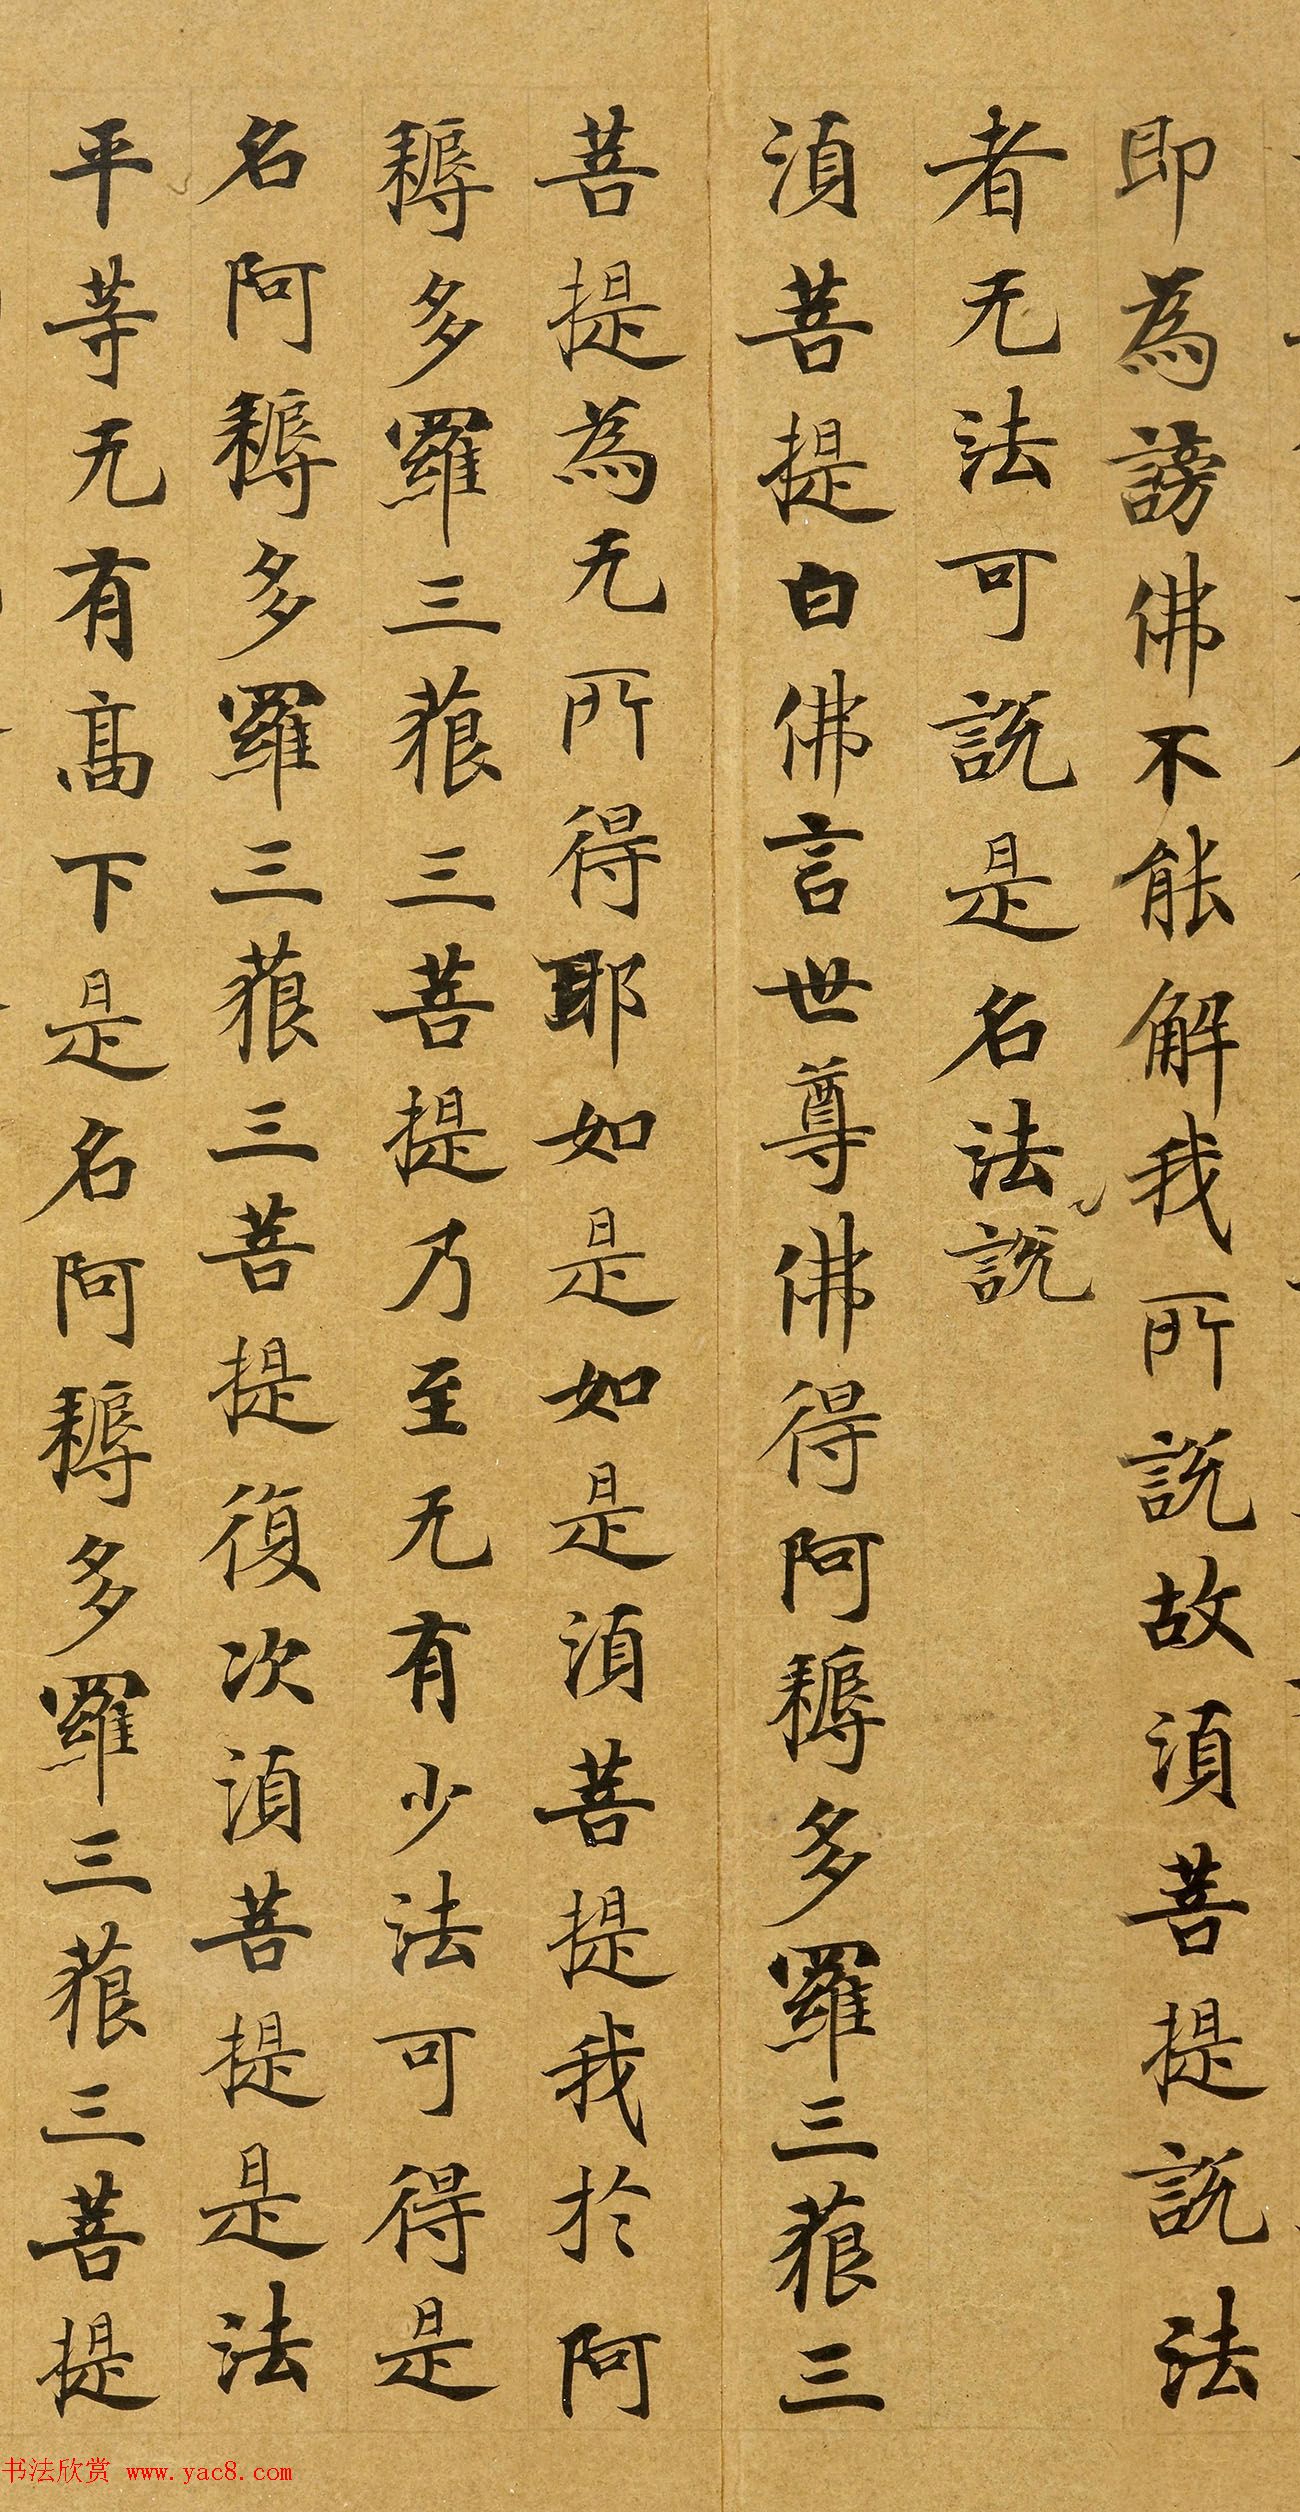 即為謗佛不能解我所說故須菩提說法
者无法可說是名法說
須菩提白佛言世尊佛得阿耨多羅三藐三
菩提為无所得耶如是如是須菩提我於阿
耨多羅三藐三菩提乃至无有少法可得是
名阿耨多羅三藐三菩提復次須菩提是法
平等无有高下是名阿耨多羅三藐三菩提
书法欣赏 www.yac8.com